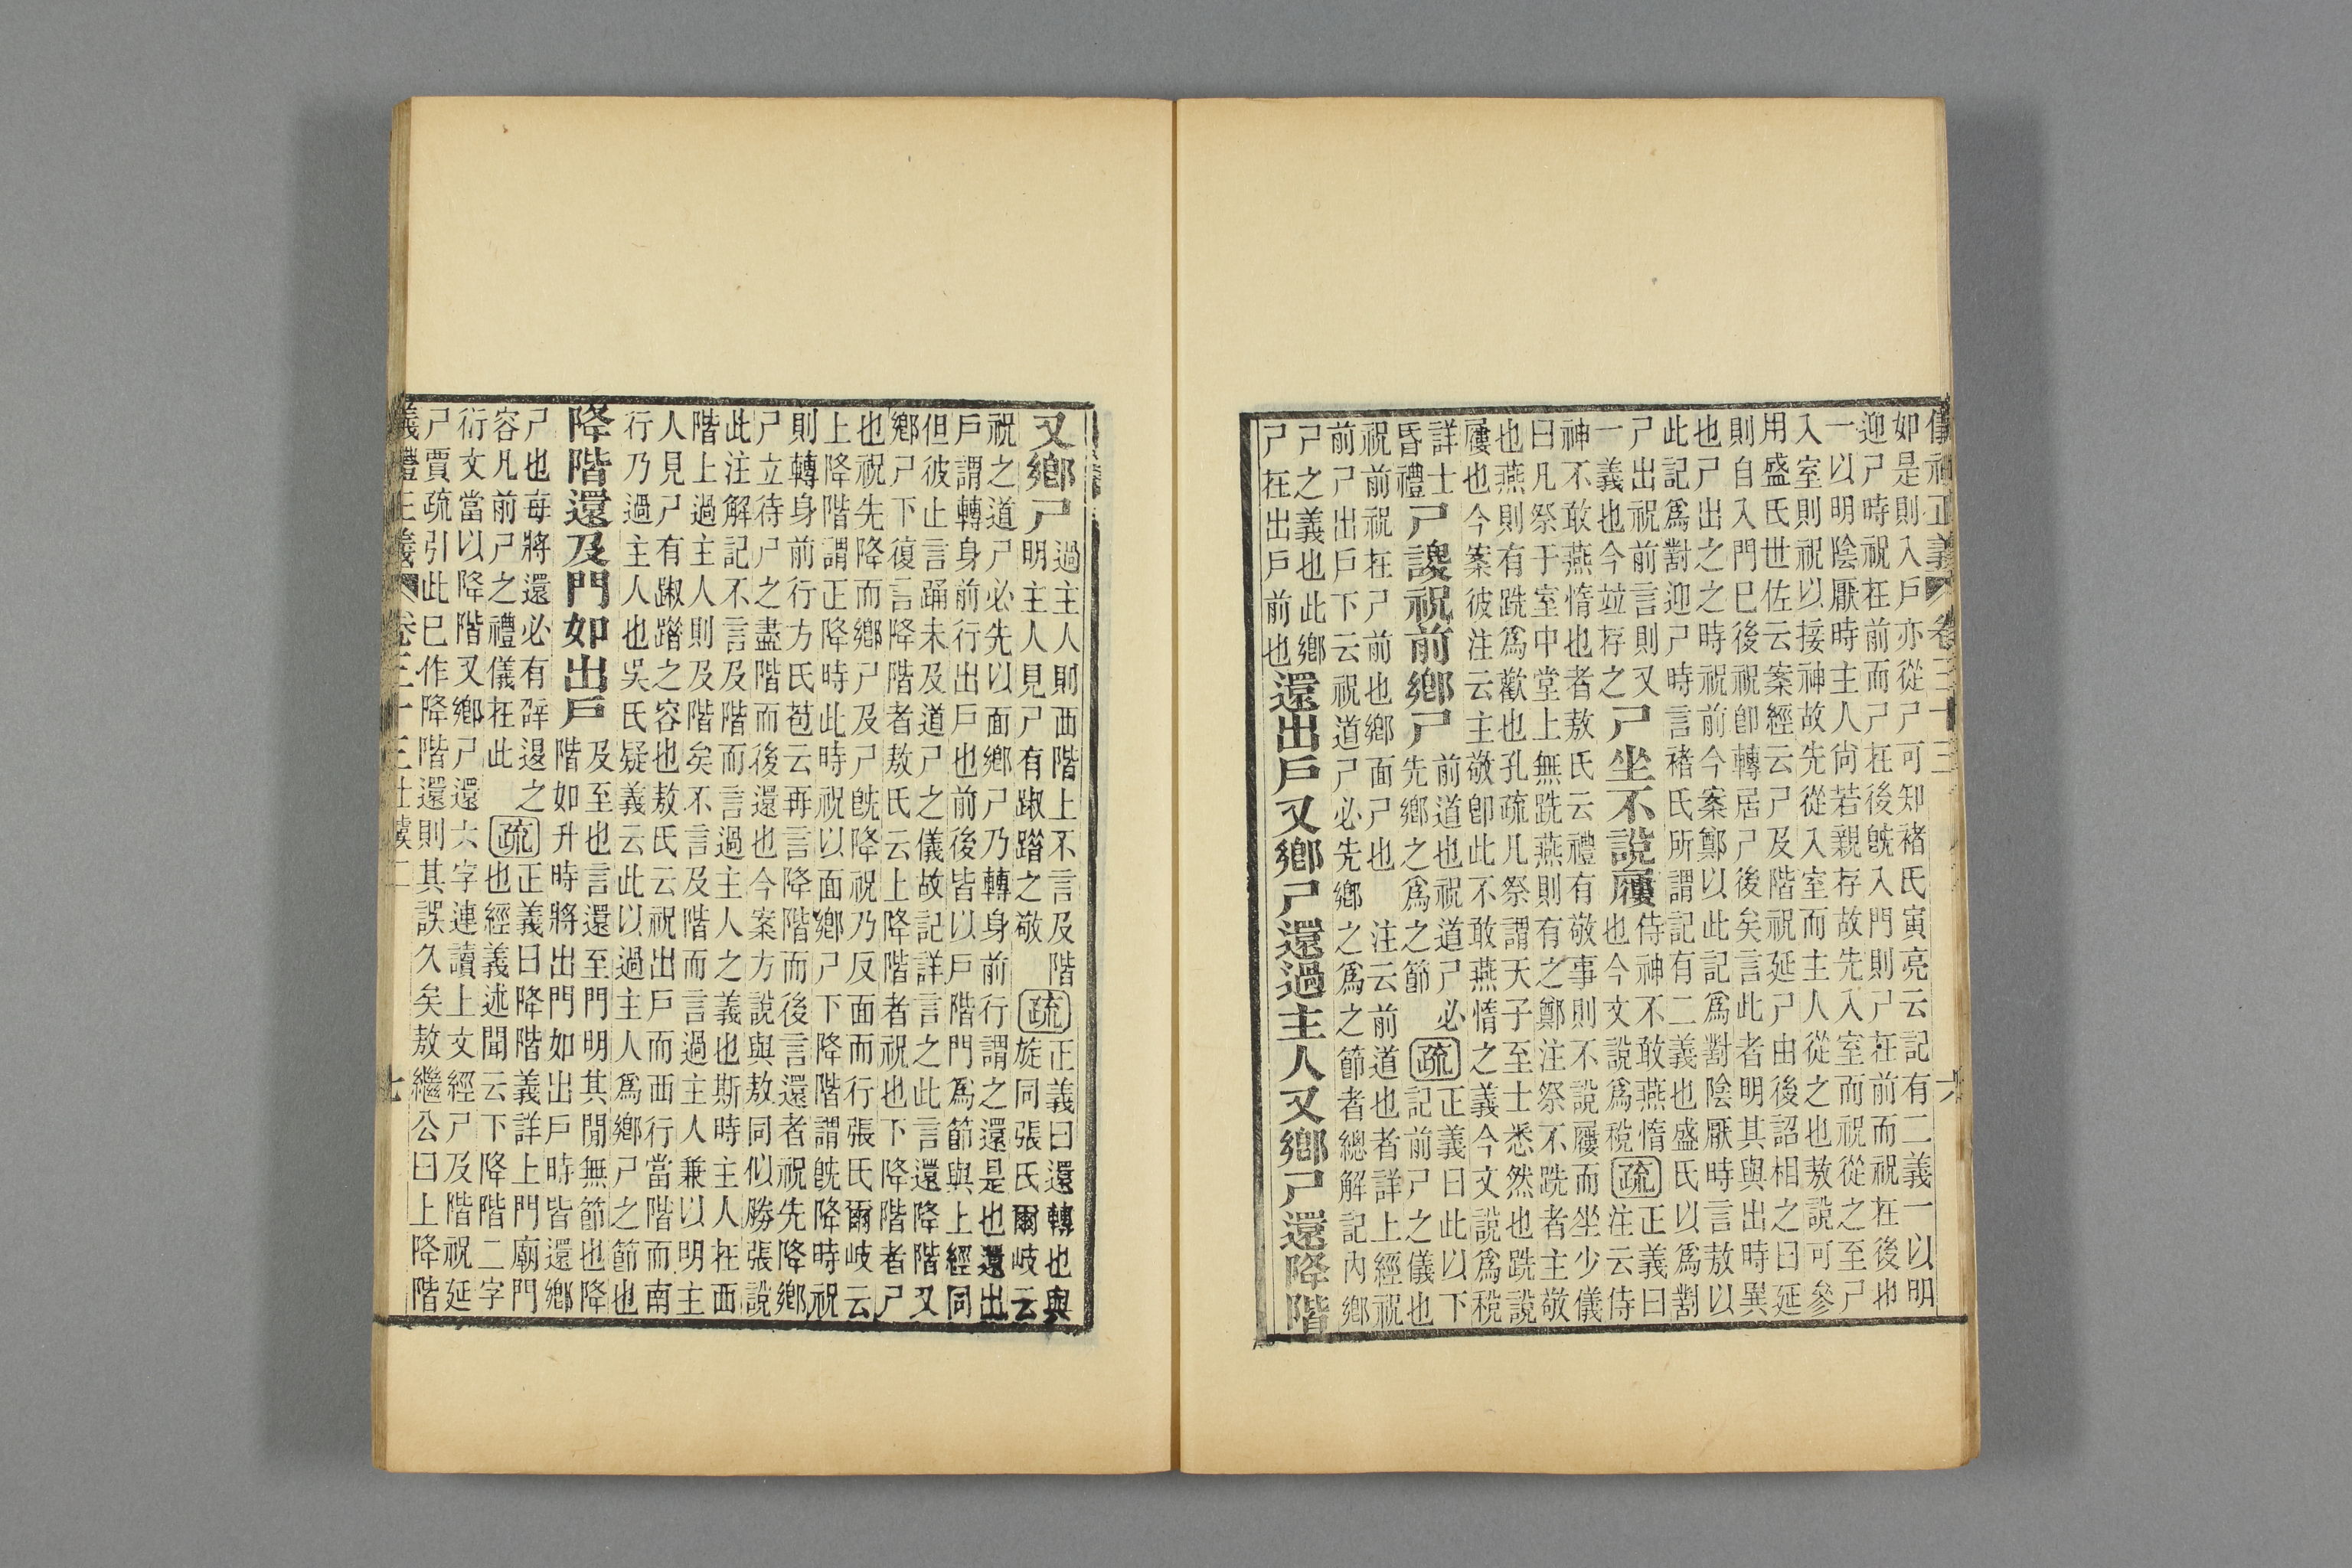 儀禮正義 卷三十三 六
如是則入戶亦從尸可知褚氏寅亮云記有二義一以明
迎尸時祝在前而尸在後旣入門則尸在前而祝在後也
一以明陰厭時主人尙若親存故先入室而祝從之至尸
入室則祝以接神故先從入室而主人從之也敖說可參
用盛氏世佐云案經云尸及階祝延尸由後詔相之曰延
則自入門巳後祝卽轉居尸後矣言此者明其與出時異
也尸出之之時祝前今案鄭以此記爲對陰厭時言敖以
此記爲對迎尸時言褚氏所謂記有二義也盛氏以爲對
尸出祝前言則又
一義也今竝存之
尸坐不說屨
侍神不敢燕惰
也今文說爲稅
疏
正義曰
注云侍
神不敢燕惰也者敖氏云禮有敬事則不說屨而坐少儀
曰凡祭于室中堂上無跣燕則有之鄭注祭不跣者主敬
也燕則有跣爲歡也孔疏凡祭謂天子至士悉然也跣說
屨也今案彼注云主敬卽此不敢燕惰之義今文說爲稅
詳士
昏禮
尸謖祝前鄉尸
前道也祝道尸必
先鄉之爲之節
疏
正義曰此以下
記前尸之儀也
祝前祝在尸前也鄉面尸也 注云前道也者詳上經祝
前尸出戶下云祝道尸必先鄉之爲之節者總解記內鄉
尸之義也此鄉
尸在出戶前也
還出戶又鄉尸還過主人又鄉尸還降階
又鄉尸
過主人則西階上不言及階
明主人見尸有踧踖之敬
疏
正義曰還轉也與
旋同張氏爾岐云
祝之道尸必先以面鄉尸乃轉身前行謂之還是也還出
戶謂轉身前行出戶也前後皆以戶階門爲節與上經同
但彼止言踊未及道尸之儀故記詳言之此言還降階又
鄉尸下復言降階者敖氏云上降階者祝也下降階者尸
也祝先降而鄉尸及尸旣降祝乃反面而行張氏爾岐云
上降階謂正降時此時祝以面鄉尸下降階謂旣降時祝
則轉身前行方氏苞云再言降階而後言還者祝先降鄉
尸立待尸之盡階而後還也今案方說與敖同似勝張說
此注解記不言及階而言過主人之義也斯時主人在西
階上過主人則及階矣不言及階而言過主人兼以明主
人見尸有踧踖之容也敖氏云祝出戶而西行當階而南
行乃過主人也吳氏疑義云此以過主人爲鄉尸之節也
降階還及門如出戶
及至也言還至門明其閒無節也降
階如升時將出門如出戶時皆還鄉
尸也每將還必有辟退之
容凡前尸之禮儀在此
疏
正義曰降階義詳上門廟門
也經義述聞云下降階二字
衍文當以降階又鄉尸還六字連讀上文經尸及階祝延
尸賈疏引此巳作降階還則其誤久矣敖繼公曰上降階
義禮正義 卷三十三士虞二 七